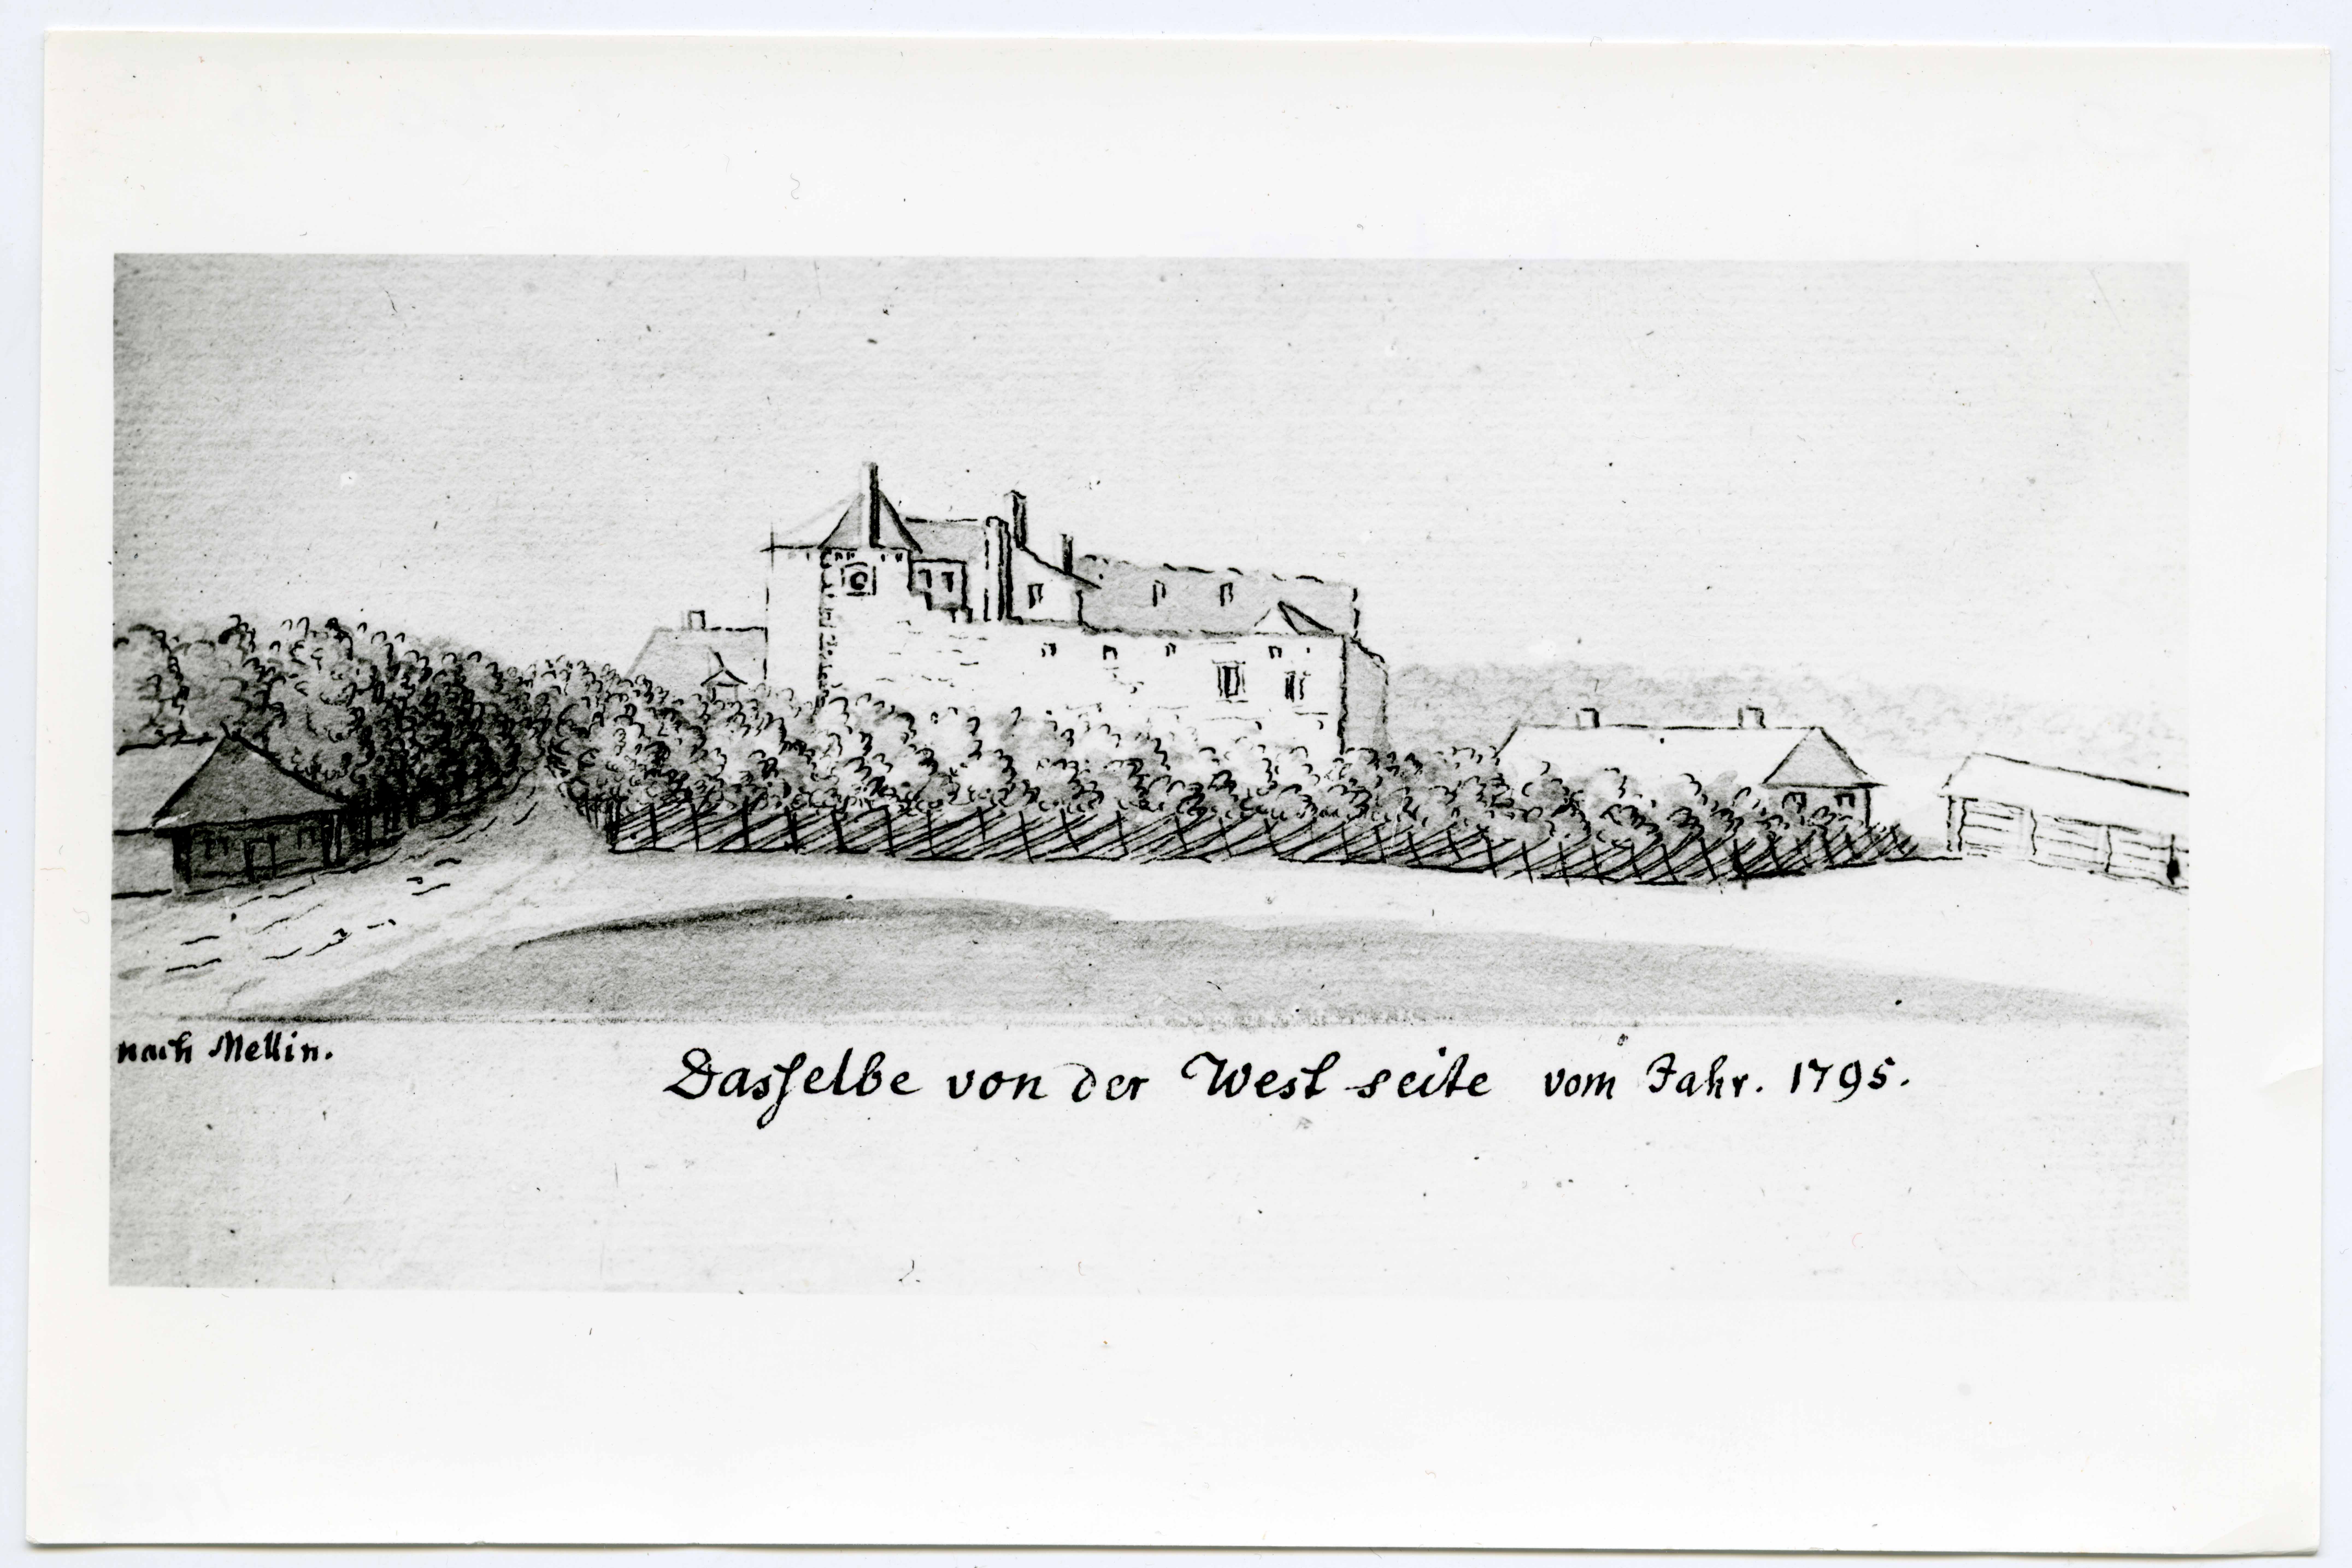 nach Mellin.
Dasſelbe von der West seite vom Jahr. 1795.